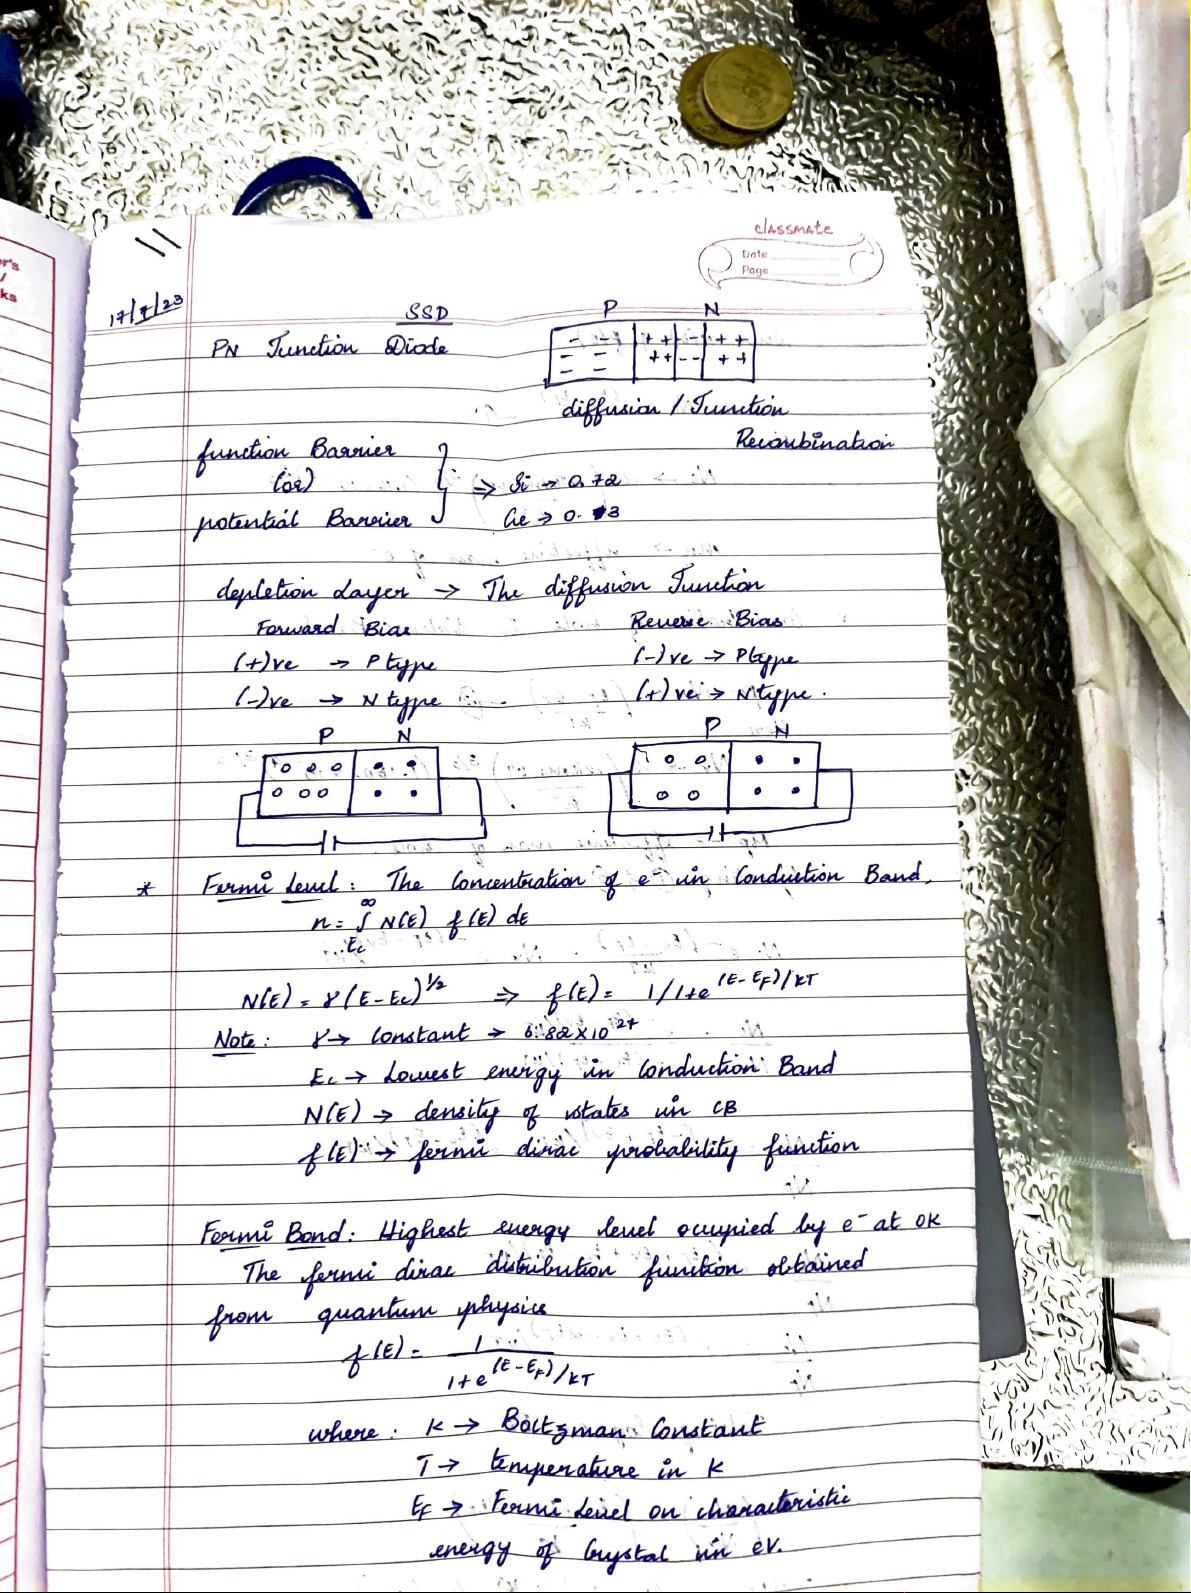 classmate
Date
Page
r's
/
ks
17/7/23
SSD
P N
PN Junction Diode
- - + + - - + +
- - + + - - + +
- -
diffusion / Junction
Recombination
function Barrier
(or)
potential Barrier
⇒ Si → 0.72
Ge → 0.3
depletion Layer → The diffusion Junction
Forward Bias
(+)ve → P type
(-)ve → N type
Reverse Bias
(-)ve → P type
(+)ve → N type.
P N
P N
* Fermi Level : The Concentration of e⁻ in Conduction Band,
n = ∫ N(E) f(E) dE
∞
Ec
N(E) = γ(E-Ec)^1/2 ⇒ f(E) = 1/1+e^(E-EF)/KT
Note : γ → Constant → 6.82x10^27
Ec → Lowest energy in Conduction Band
N(E) → density of states in CB
f(E) → fermi dirac probability function
Fermi Bond : Highest energy level occupied by e⁻ at 0K
The fermi dirac distribution function obtained
from quantum physics
f(E) = 1 / 1+e^(E-EF)/KT
where : K → Boltzman Constant
T → temperature in K
EF → Fermi Level on characteristic
energy of Crystal in eV.